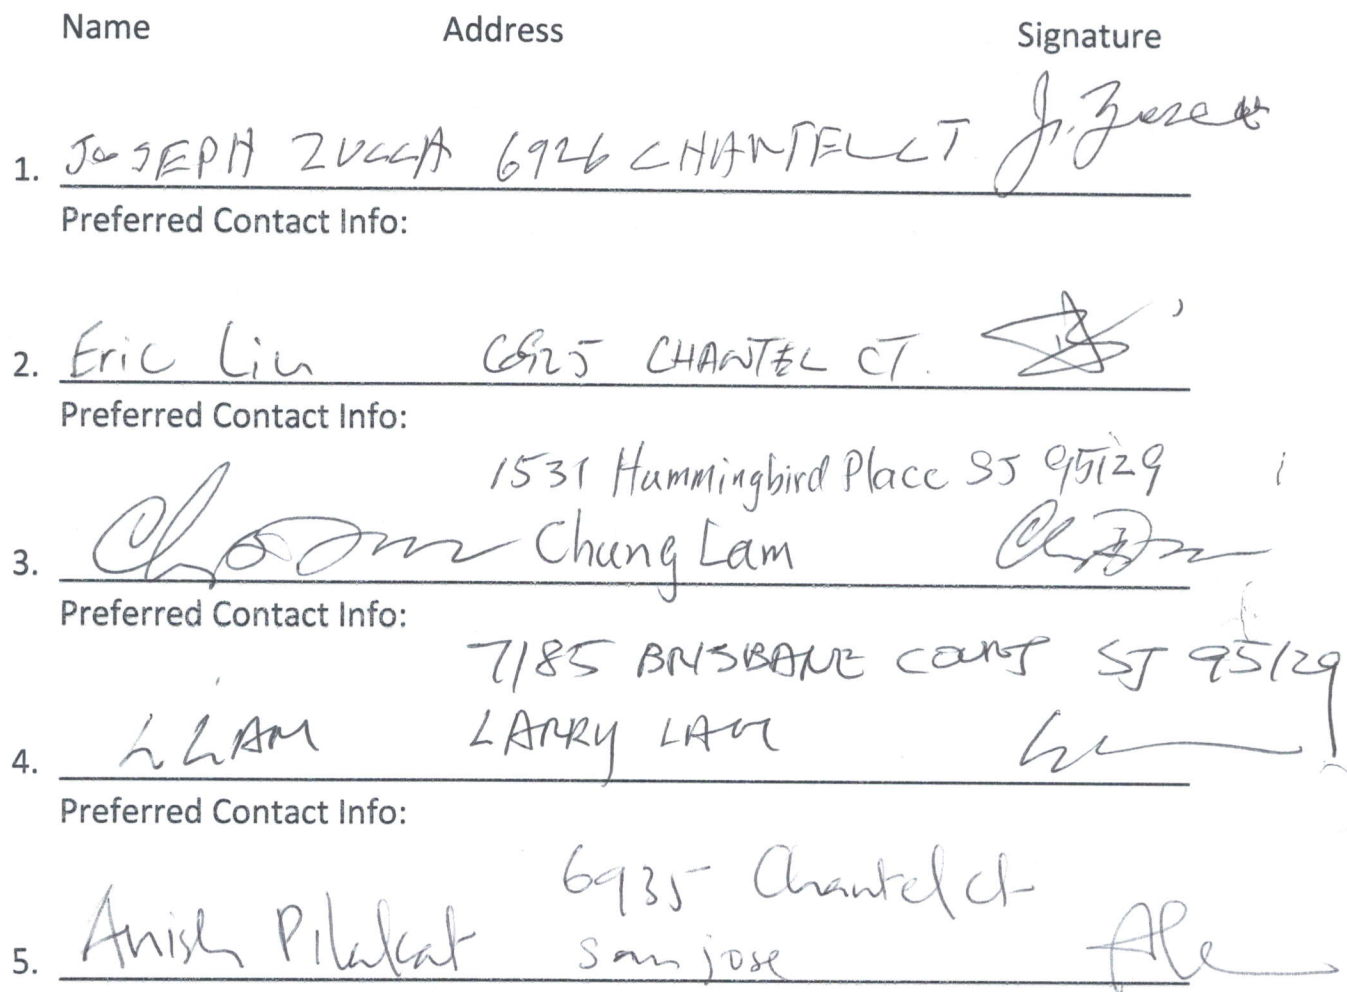 Name Address Signature
1. JOSEPH ZUCCA 6926 CHANTEL CT J. Zucca
Preferred Contact Info:
2. Eric Liu 6925 CHANTEL CT.
Preferred Contact Info:
1531 Hummingbird Place SJ 95129
3. Chung Lam
Preferred Contact Info:
7185 BRISBANE COURT SJ 95129
4. L LAM LARRY LAM
Preferred Contact Info:
6935 Chantel ct
5. Anish Pilakat san jose